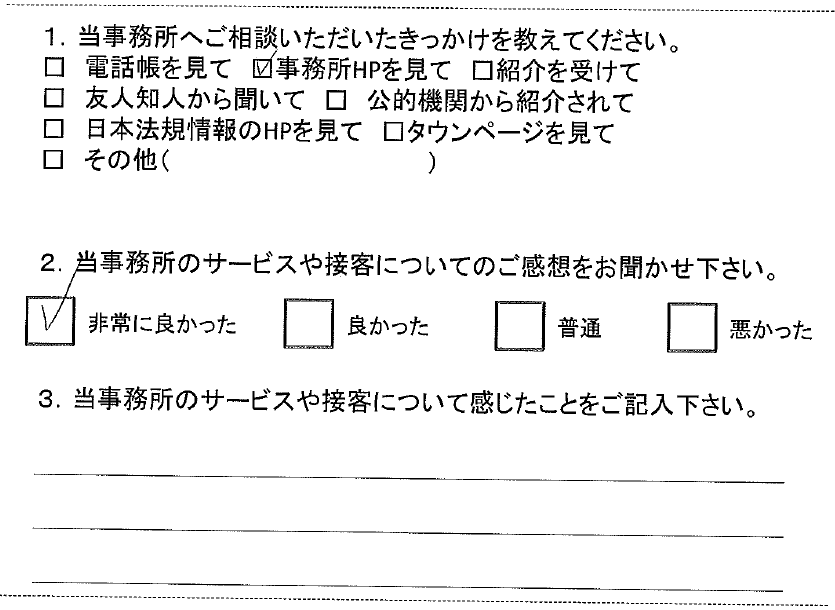 1. 当事務所へご相談いただいたきっかけを教えてください。
□ 電話帳を見て ☑事務所HPを見て □紹介を受けて
□ 友人知人から聞いて □ 公的機関から紹介されて
□ 日本法規情報のHPを見て □タウンページを見て
□ その他( )
2. 当事務所のサービスや接客についてのご感想をお聞かせ下さい。
☑ 非常に良かった □ 良かった □ 普通 □ 悪かった
3. 当事務所のサービスや接客について感じたことをご記入下さい。